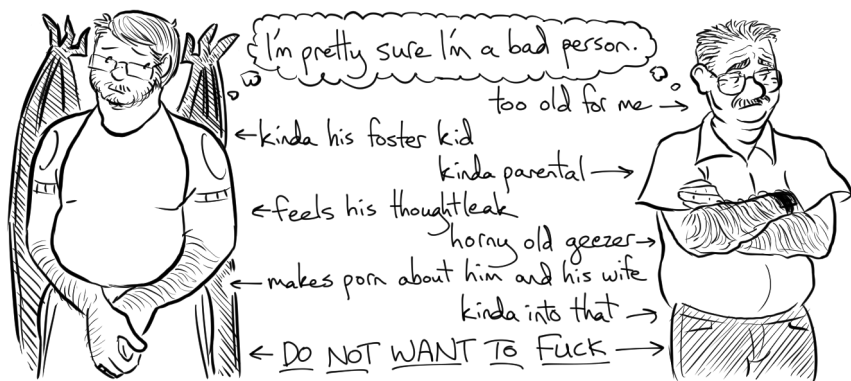 I'm pretty sure I'm a bad person.
too old for me →
← kinda his foster kid
kinda parental →
← feels his thoughtleak
horny old geezer →
← makes porn about him and his wife
kinda into that →
← DO NOT WANT TO FUCK →